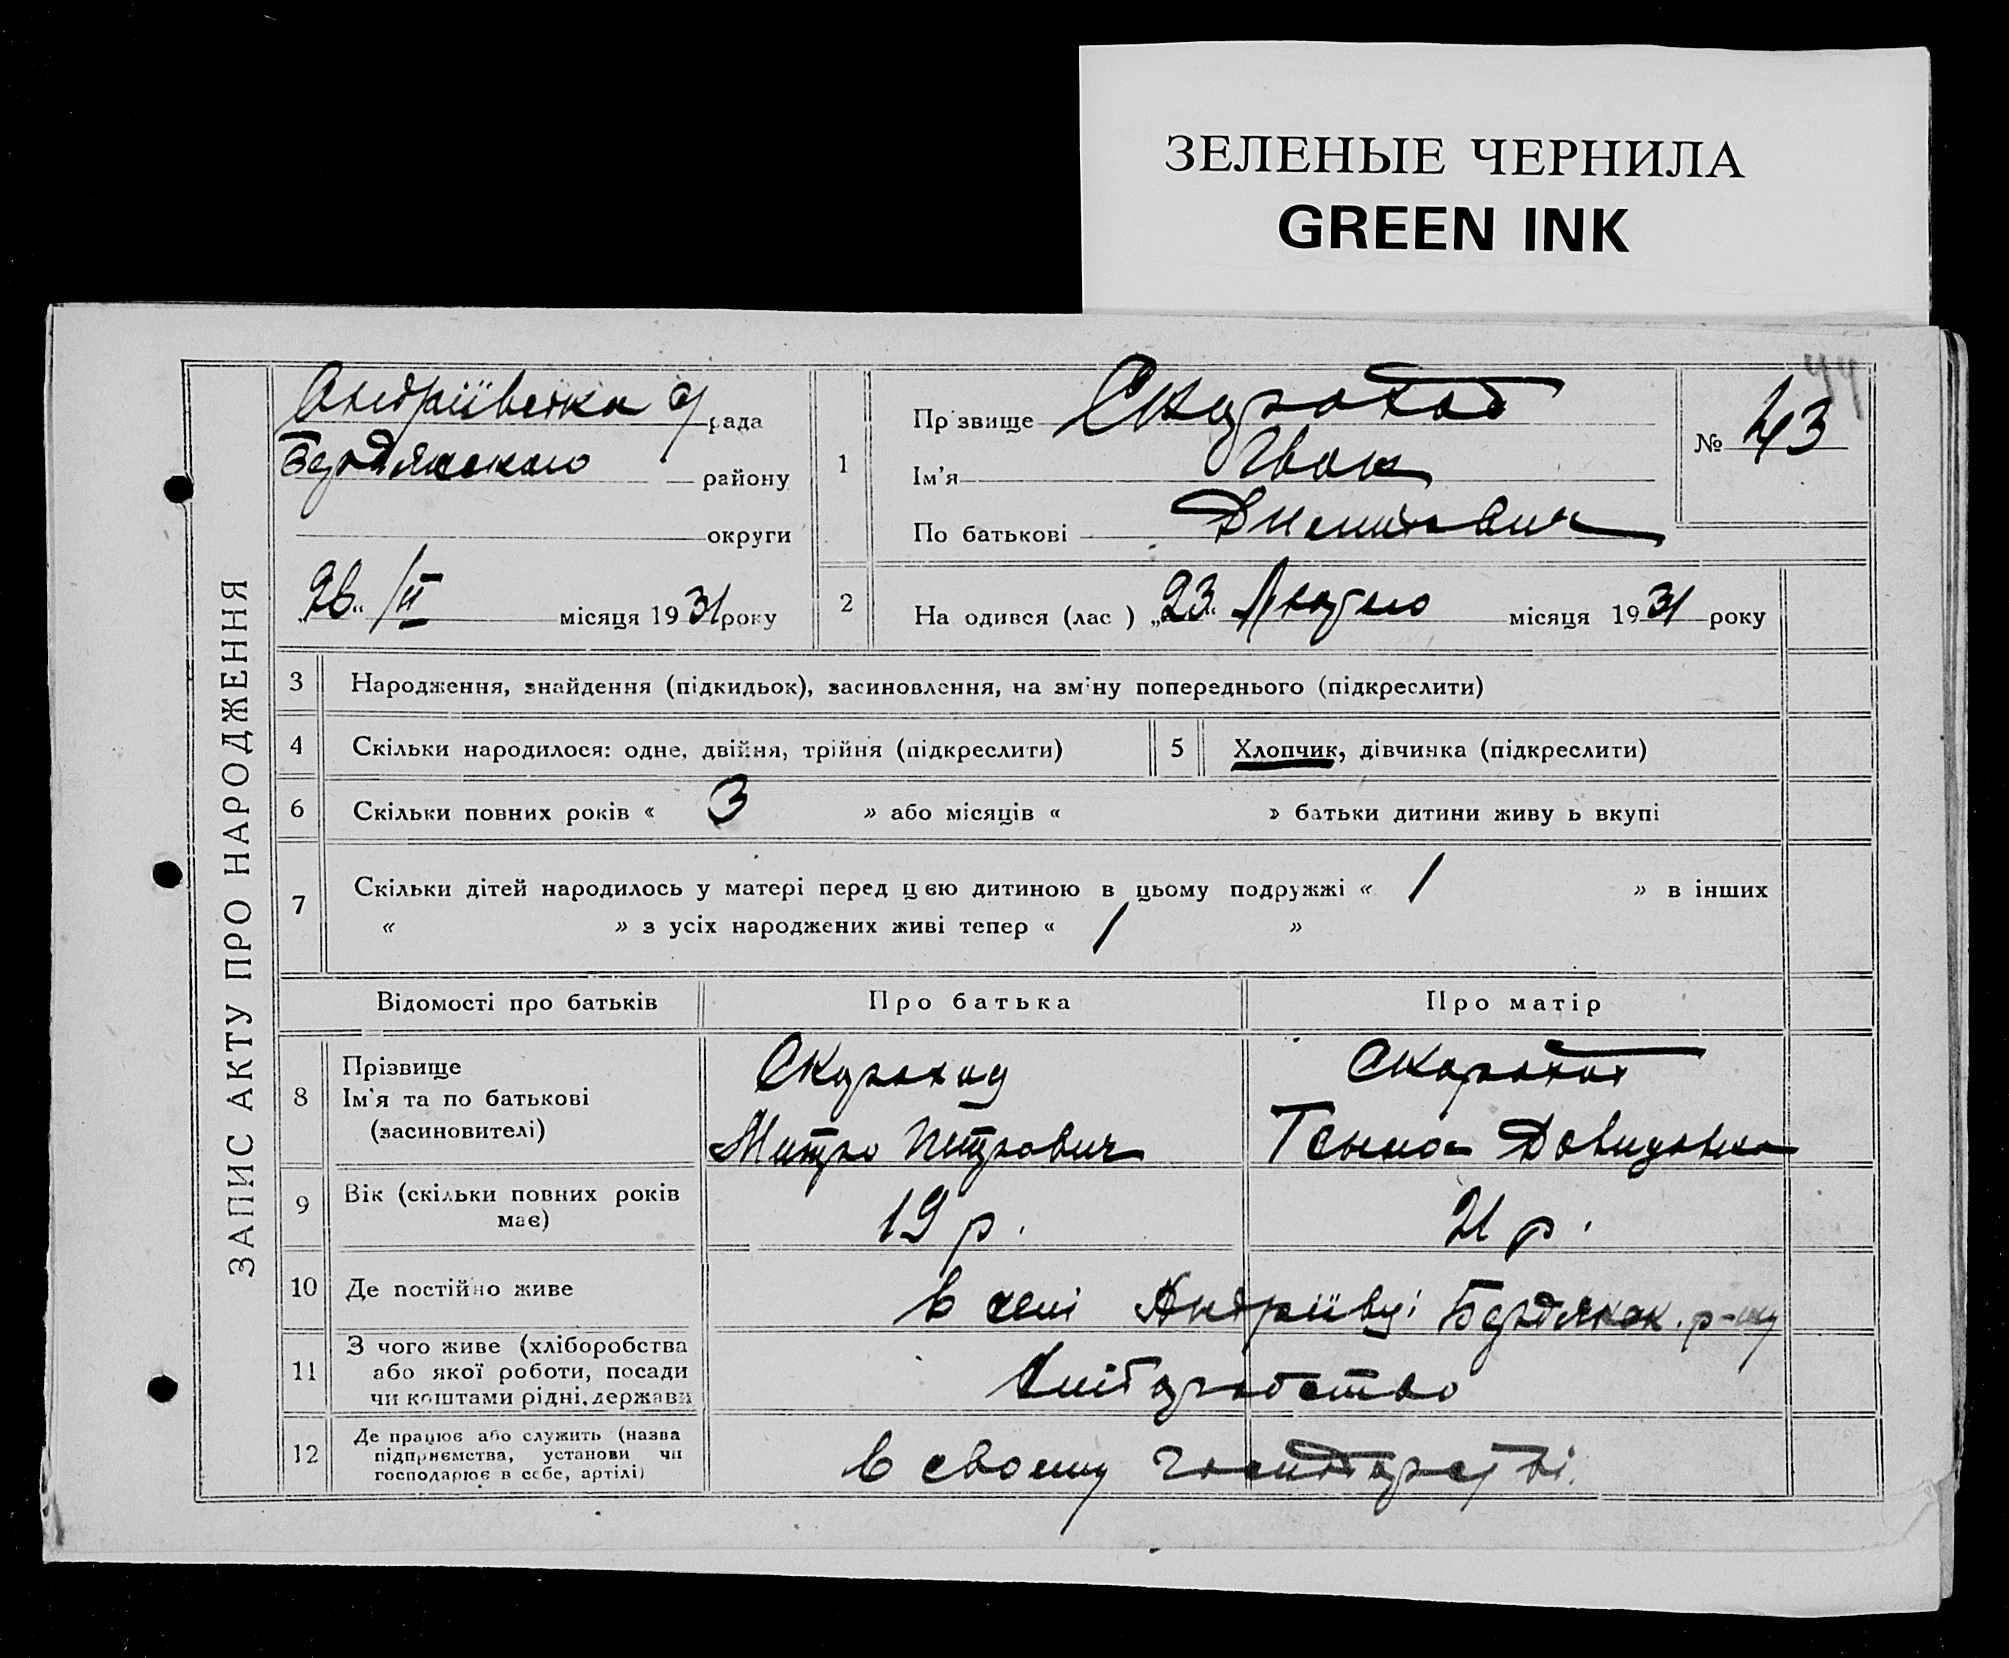 ЗЕЛЕНЫЕ ЧЕРНИЛА
GREEN INK
44
ЗАПИС АКТУ ПРО НАРОДЖЕННЯ
Андріївська с/рада
Бердянського району
округи
„26“ /II місяця 1931 року
1
Пр звище Скороход
Ім'я Іван
По батькові
№ 43
2
На одився (лас ) „23“ Лютого місяця 1931 року
3 Народження, знайдення (підкидьок), засиновлення, на зміну попереднього (підкреслити)
4 Скільки народилося: одне, двійня, трійня (підкреслити)
5 Хлопчик, дівчинка (підкреслити)
6 Скільки повних років « 3 » або місяців « » батьки дитини живу ь вкупі
7 Скільки дітей народилось у матері перед цею дитиною в цьому подружжі « 1 » в інших
« » з усіх народжених живі тепер « 1 »
Відомості про батьків Про батька Про матір
8 Прізвище Скороход Скороход
Ім'я та по батькові
(засиновителі) Митро Петрович Давидовна
9 Вік (скільки повних років
має) 19 р. 21 р.
10 Де постійно живе в селі Андріївці Бердянськ. р-ну
11 З чого живе (хліборобства
або якої роботи, посади
чи коштами рідні, держави Хліборобство
12 Де працює або служить (назва
підприємства, установи чи
господарює в себе, артілі) в своему господарстві.